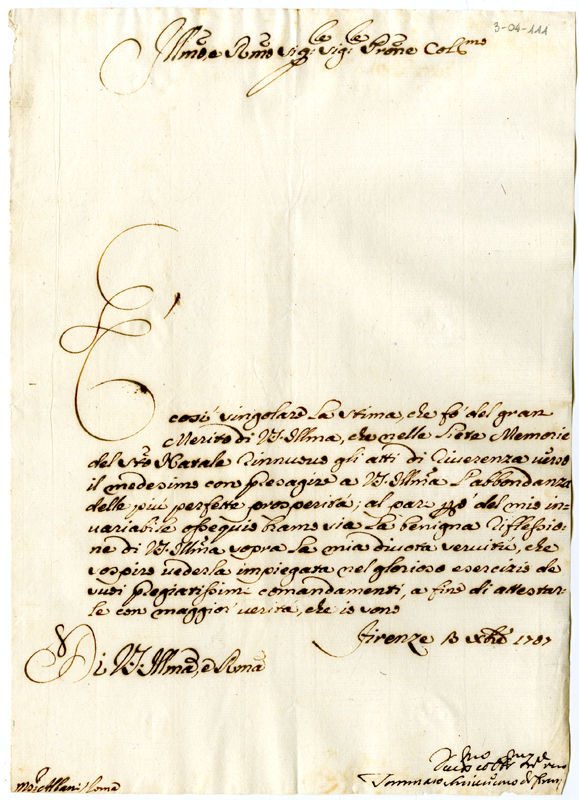 3-04-111
Illmo, e Rmo Sig:re Sig:re Prone Colmo
E'
così singolare la stima, che fò del gran
Merito di V.S. Illma, che nelle Liete Memorie
del Sto Natale rinnuovo gli atti di riverenza verso
il medesimo con presagire a V.S. Illma l'abbondanza
delle più perfette prosperità; al par però del mio in=
variabile ossequio bramo sia la benigna riflessio=
ne di V.S. Illma sopra la mia divota servitù, che
sospiro vederla impiegata nel glorioso esercizio de
suoi pregiatissimi comandamenti, a fine di attestar=
le con maggior verità, che io sono
Firenze 13 Xbre 1707
Di V.S. Illma, e Rma
Tommaso
Mor Albani Roma